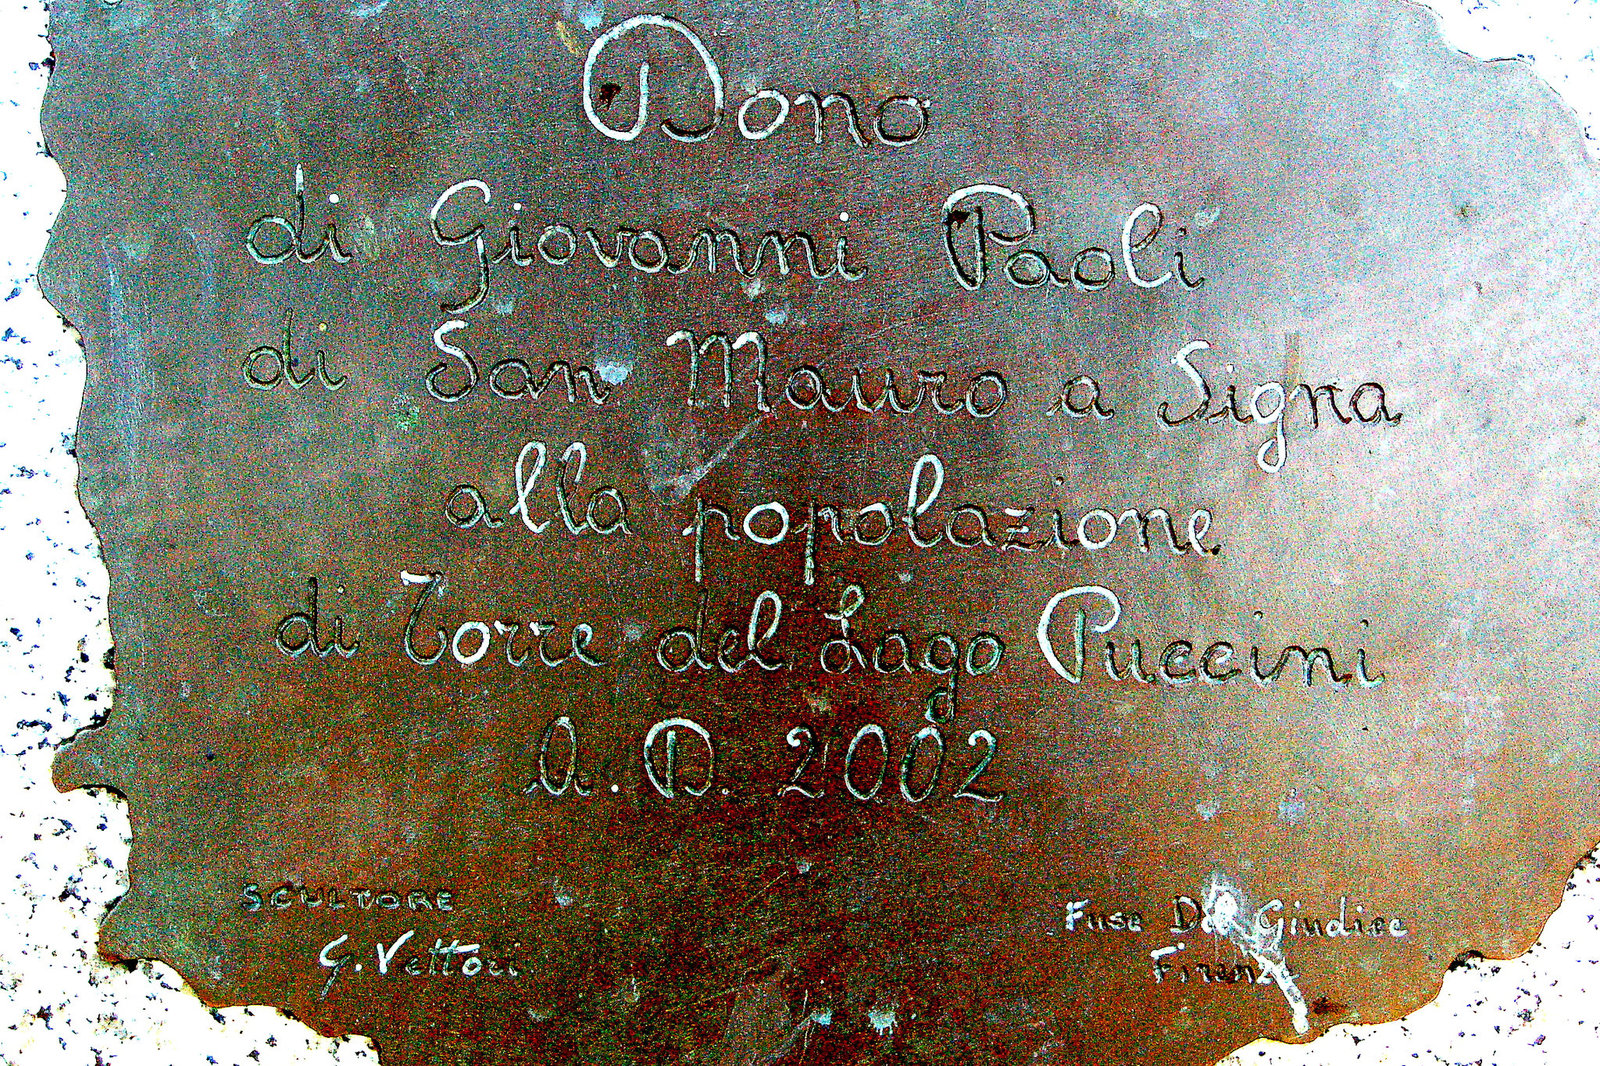 Dono
di Giovanni Paoli
di San Mauro a Signa
alla popolazione
di Torre del Lago Puccini
A.D. 2002
SCULTORE
G. Vettori
Fuse Del Giudice
Firenze